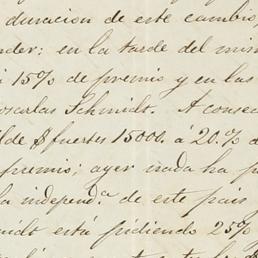 duracion de este cambio,
nder: en la tarde del mism
i 15% de premio y en las
oscarlos Schmidt. A consec
lde $fuertes 15000. á 20.% d
premio; ayer nada ha p
la independ.ª de este pais
midt está pidiendo 25%